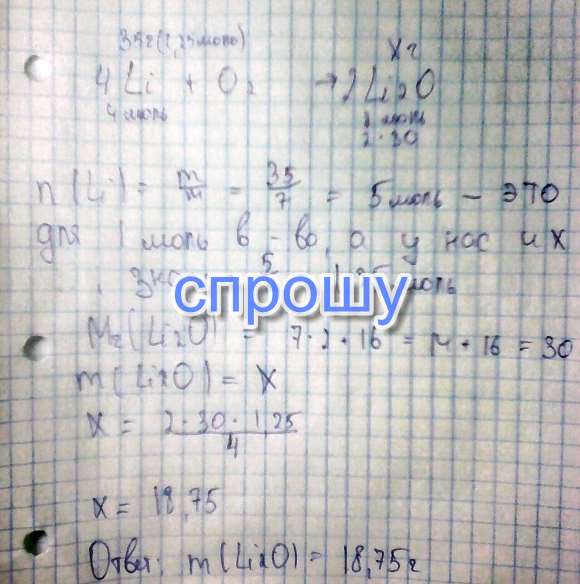 35г (1,25моль) хг
4Li + O2 → 2Li2O
4 моль моль
2·30
n(Li) = m/m = 35/7 = 5 моль – это
для 1 моль в-во, а у нас их
5 моль
спрошу
Mr(Li2O) = 7·2+16 = 14+16 = 30
m(Li2O) = X
X = 2·30·1,25/4
X = 18,75
Ответ: m(Li2O) = 18,75г